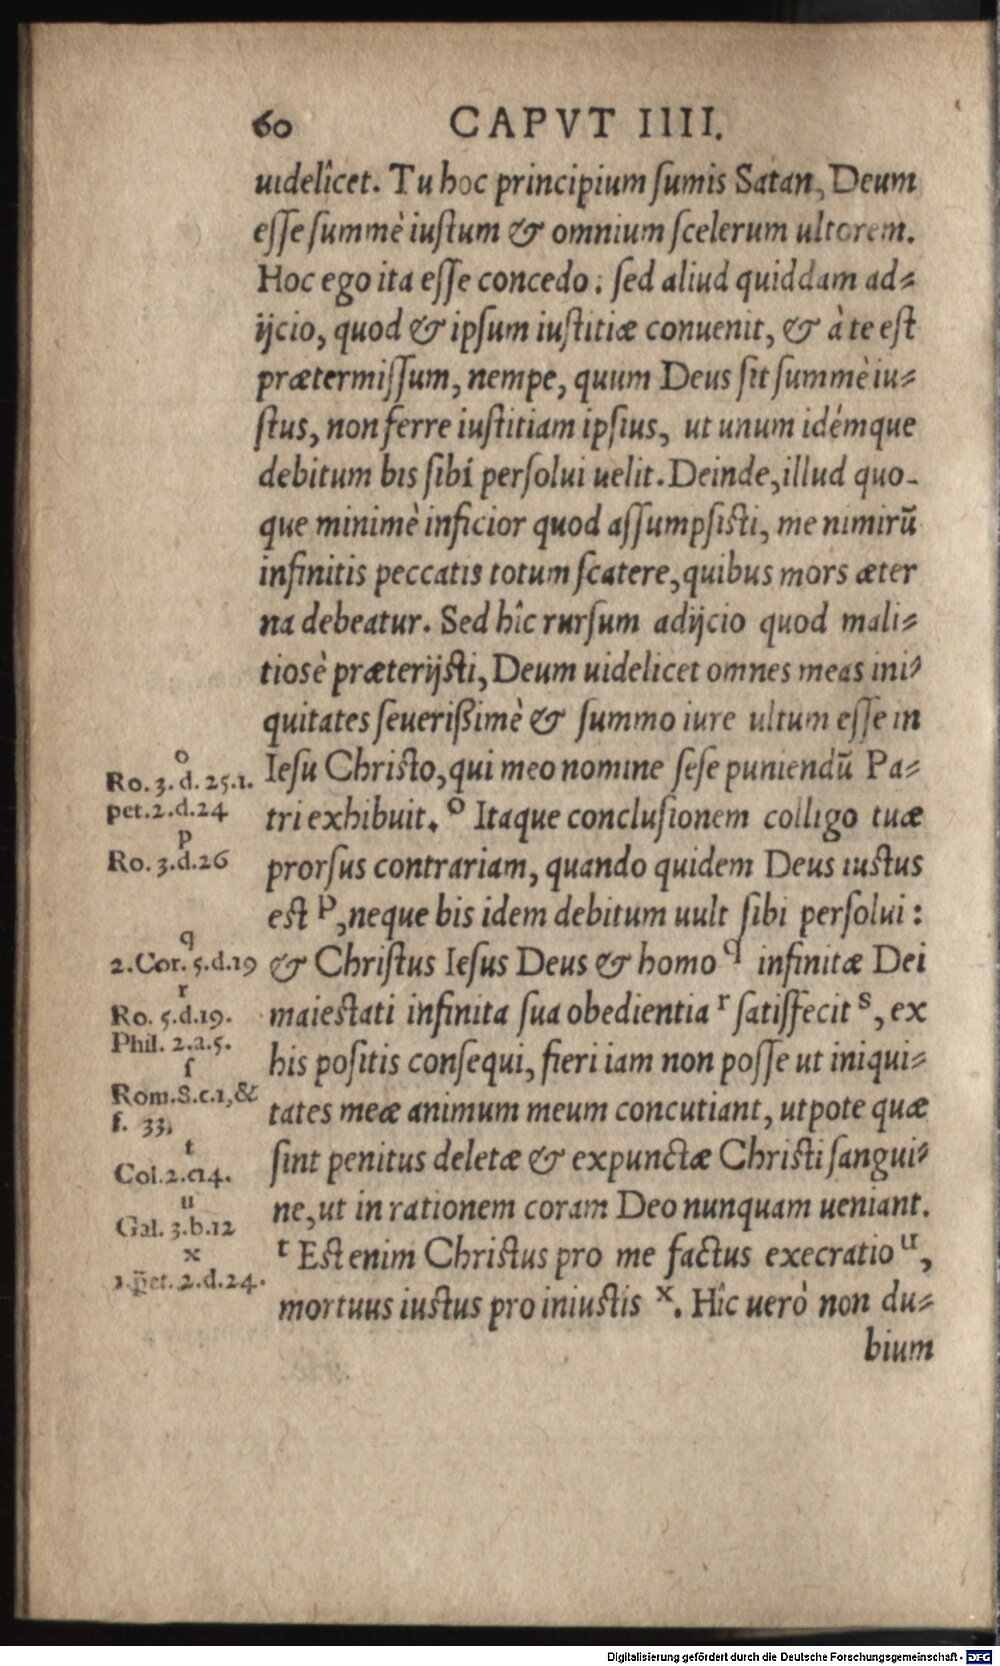 60 CAPVT IIII.
uidelîcet. Tu hoc principium ſumis Satan, Deum
eſſe ſummè iuſtum & omnium ſcelerum ultorem.
Hoc ego ita eſſe concedo: ſed aliud quiddam ad-
ijcio, quod & ipſum iuſtitiæ conuenit, & à te eſt
prætermiſſum, nempe, quum Deus ſit ſummè iu-
ſtus, non ferre iuſtitiam ipſius, ut unum idémque
debitum bis ſibi perſolui uelit. Deinde, illud quo-
que minimè inficior quod aſſumpſiſti, me nimirū
infinitis peccatis totum ſcatere, quibus mors æter
na debeatur. Sed hîc rurſum adijcio quod mali-
tiosè præterijſti, Deum uidelicet omnes meas ini-
quitates ſeuerißimè & ſummo iure ultum eſſe in
Ieſu Chriſto, qui meo nomine ſeſe puniendū Pa-
tri exhibuit. o Itaque concluſionem colligo tuæ
prorſus contrariam, quando quidem Deus iuſtus
eſt p, neque bis idem debitum uult ſibi perſolui:
& Chriſtus Ieſus Deus & homo q infinitæ Dei
maieſtati infinita ſua obedientia r ſatiſfecit s, ex
his poſitis conſequi, fieri iam non poſſe ut iniqui-
tates meæ animum meum concutiant, utpote quæ
ſint penitus deletæ & expunctæ Chriſti ſangui-
ne, ut in rationem coram Deo nunquam ueniant.
t Eſt enim Chriſtus pro me factus execratio u,
mortuus iuſtus pro iniuſtis x. Hîc uerò non du-
bium
o
Ro. 3. d. 25. 1.
pet. 2. d. 24
p
Ro. 3. d. 26
q
2. Cor. 5. d. 19
r
Ro. 5. d. 19.
Phil. 2. a. 5.
ſ
Rom. 8. c. 1, &
f. 33.
t
Col. 2. c14.
u
Gal. 3. b. 12
x
1. pet. 2. d. 24.
Digitalisierung gefördert durch die Deutsche Forschungsgemeinschaft - DFG